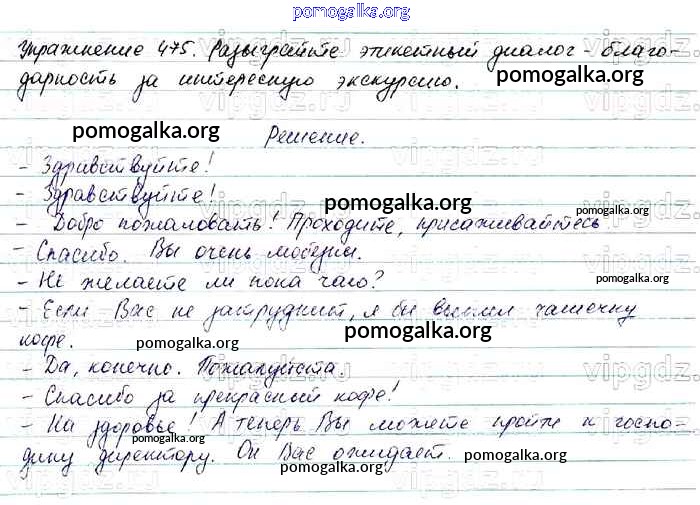 pomogalka.org
Упражнение 475. Разыграйте этикетный диалог - благо-
дарность за интересную экскурсию.
pomogalka.org
pomogalka.org
Решение.
- Здравствуйте!
- Здравствуйте!
pomogalka.org
pomogalka.org
- Добро пожаловать! Проходите, присаживайтесь
- Спасибо. Вы очень любезны.
- Не желаете ли пока чаю?
pomogalka.org
- Если Вас не затруднит, я бы выпил чашечку
кофе.
pomogalka.org
pomogalka.org
- Да, конечно. Пожалуйста.
pomogalka.org
- Спасибо за прекрасный кофе!
pomogalka.org
- На здоровье! А теперь Вы можете пройти к госпо-
pomogalka.org
дину директору. Он Вас ожидает.
pomogalka.org
pomogalka.org
vipgdz.ru